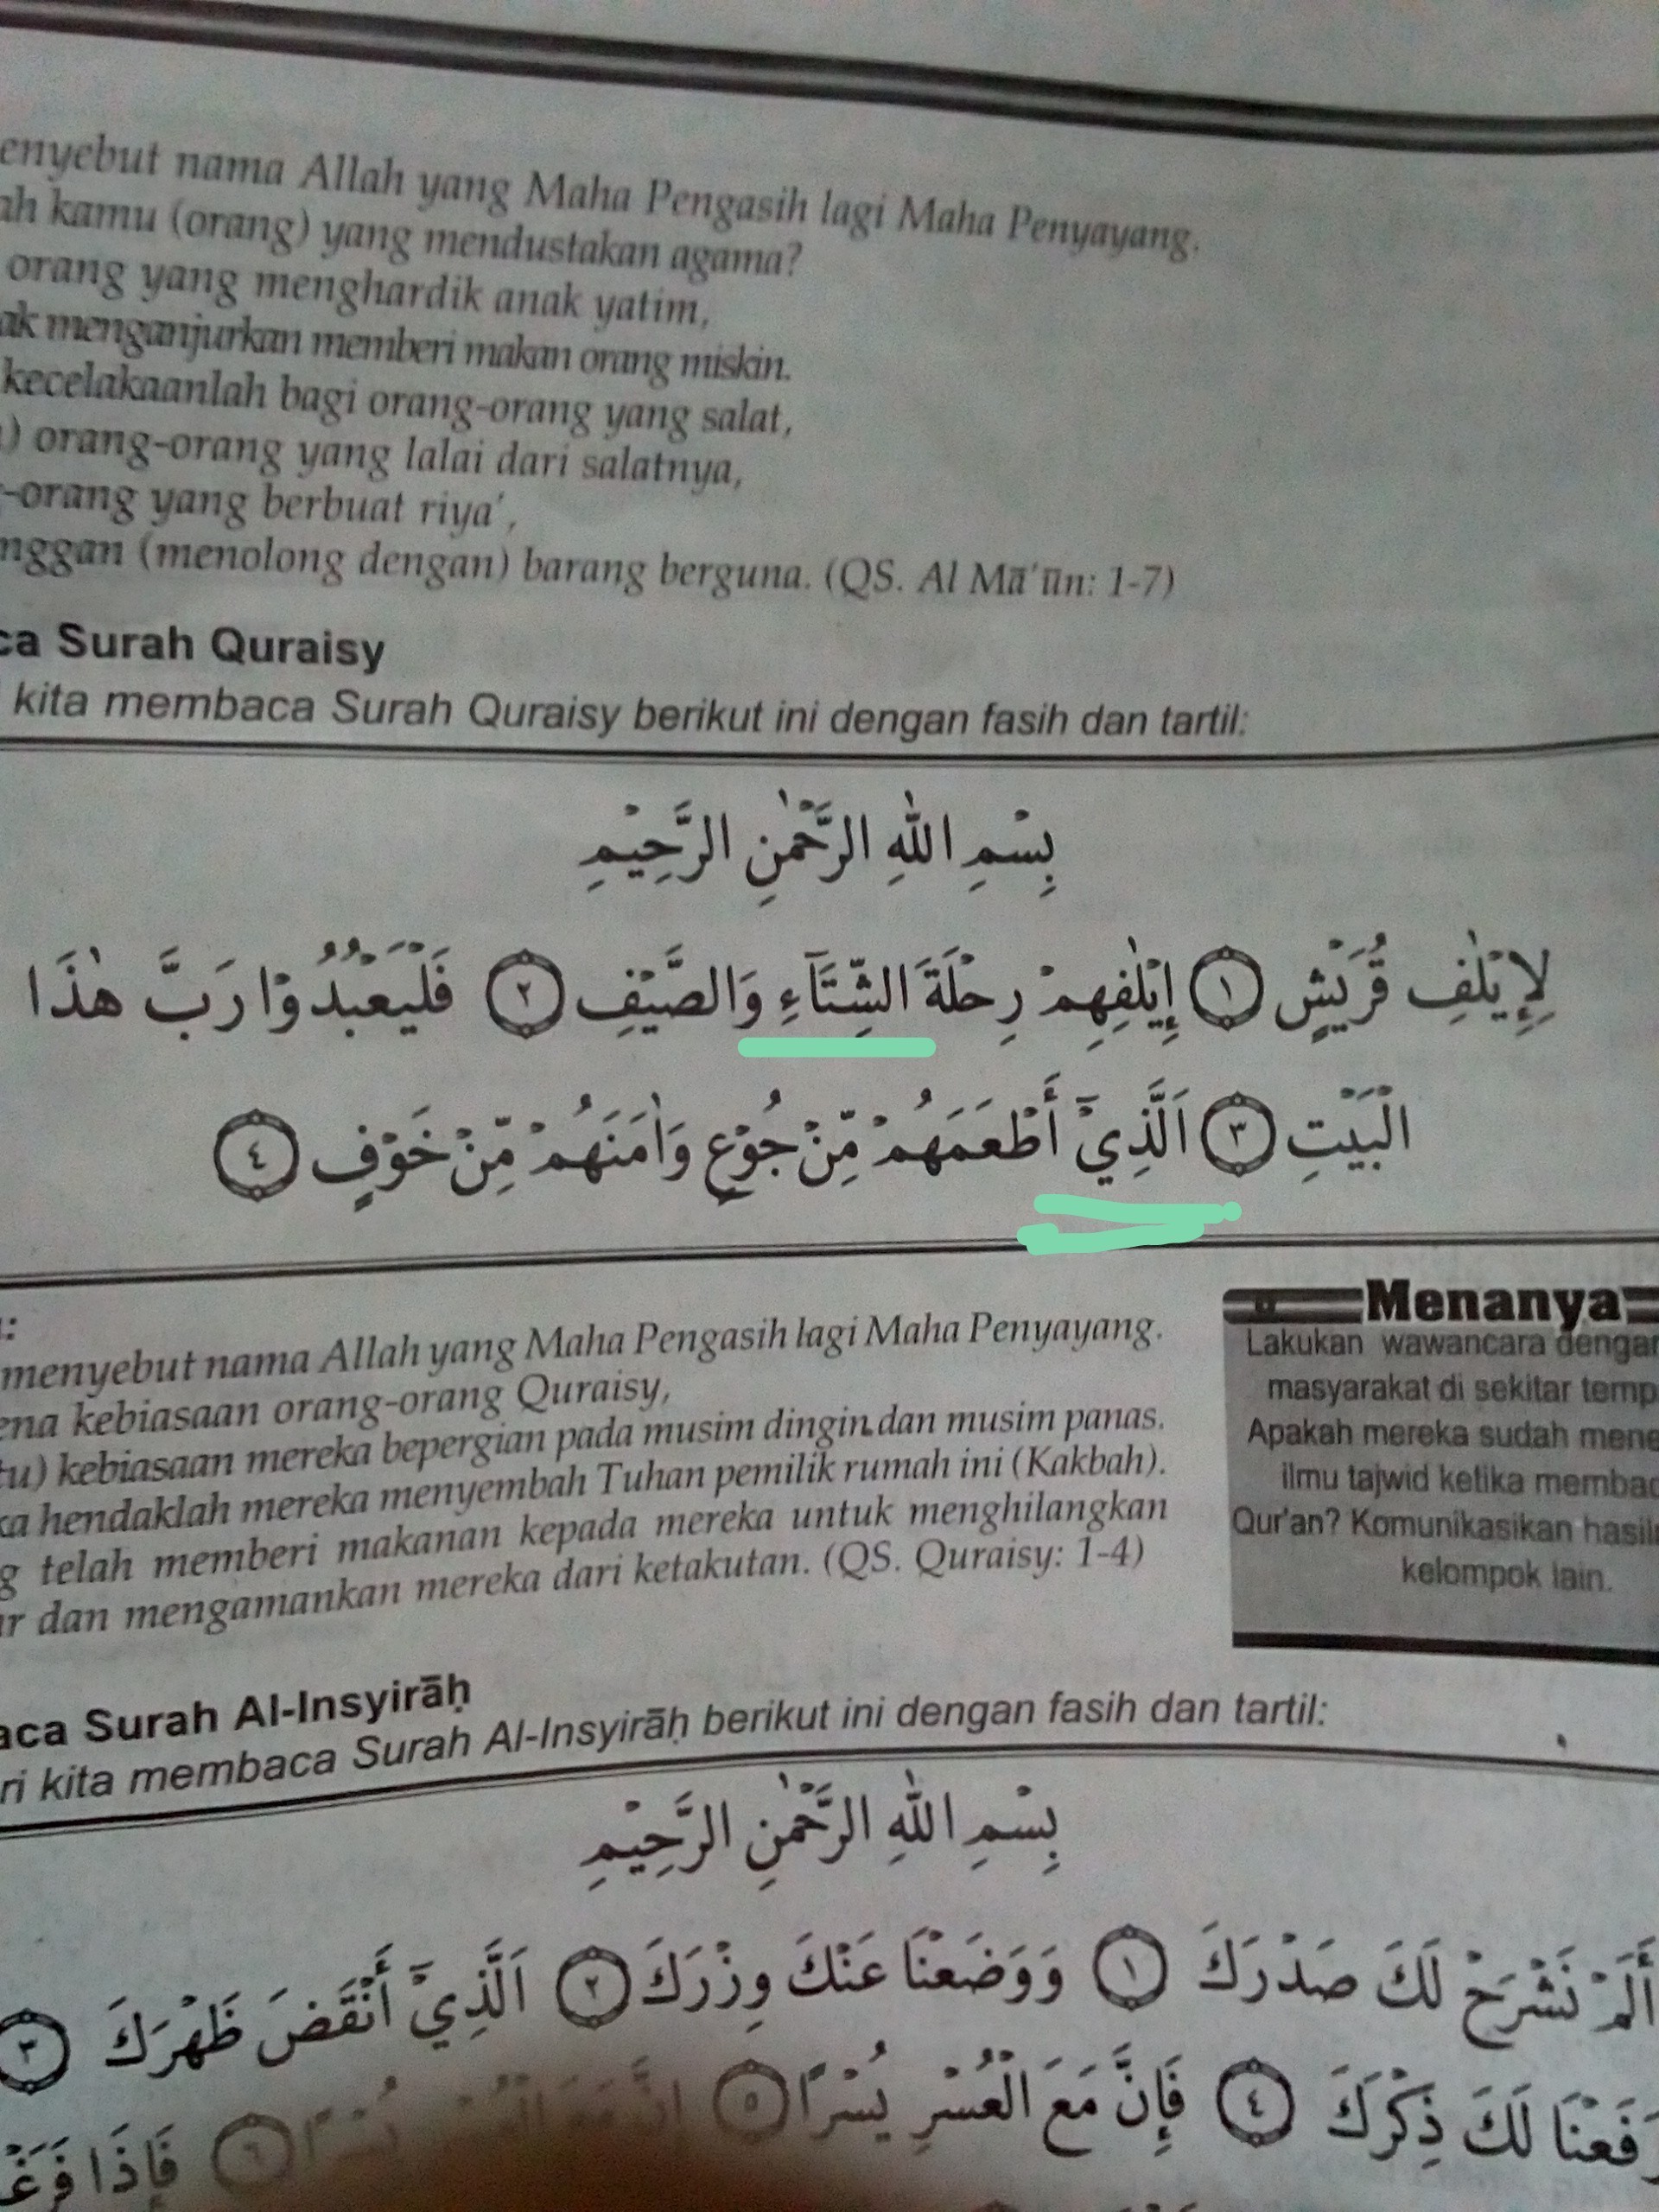 menyebut nama Allah yang Maha Pengasih lagi Maha Penyayang.
kamu (orang) yang mendustakan agama?
orang yang menghardik anak yatim,
menganjurkan memberi makan orang miskin.
kecelakaanlah bagi orang-orang yang salat,
orang-orang yang lalai dari salatnya,
-orang yang berbuat riya',
(menolong dengan) barang berguna. (QS. Al Mā'ūn: 1-7)
Surah Quraisy
kita membaca Surah Quraisy berikut ini dengan fasih dan tartil:
بِسْمِ اللهِ الرَّحْمٰنِ الرَّحِيْمِ
لِإِيْلٰفِ قُرَيْشٍ ١ إِيْلٰفِهِمْ رِحْلَةَ الشِّتَآءِ وَالصَّيْفِ ٢ فَلْيَعْبُدُوْا رَبَّ هٰذَا
الْبَيْتِ ٣ اَلَّذِيْٓ أَطْعَمَهُمْ مِّنْ جُوْعٍ وَاٰمَنَهُمْ مِّنْ خَوْفٍ ٤
menyebut nama Allah yang Maha Pengasih lagi Maha Penyayang.
kebiasaan orang-orang Quraisy,
kebiasaan mereka bepergian pada musim dingin dan musim panas.
hendaklah mereka menyembah Tuhan pemilik rumah ini (Kakbah).
telah memberi makanan kepada mereka untuk menghilangkan
dan mengamankan mereka dari ketakutan. (QS. Quraisy: 1-4)
Menanya
Lakukan wawancara dengan
masyarakat di sekitar
Apakah mereka sudah
ilmu tajwid ketika
Qur'an? Komunikasikan
kelompok lain.
Surah Al-Insyirāḥ
kita membaca Surah Al-Insyirāḥ berikut ini dengan fasih dan tartil:
بِسْمِ اللهِ الرَّحْمٰنِ الرَّحِيْمِ
أَلَمْ نَشْرَحْ لَكَ صَدْرَكَ ١ وَوَضَعْنَا عَنْكَ وِزْرَكَ ٢ اَلَّذِيْٓ أَنْقَضَ ظَهْرَكَ ٣
لَكَ ذِكْرَكَ ٤ فَإِنَّ مَعَ الْعُسْرِ يُسْرًا ٥ إِنَّ مَعَ الْعُسْرِ يُسْرًا ٦ فَإِذَا